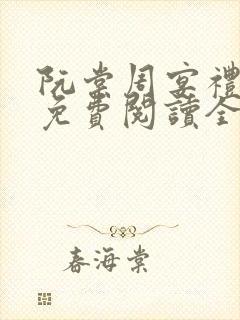 阮棠周宴禮
免費閱讀全
春海棠